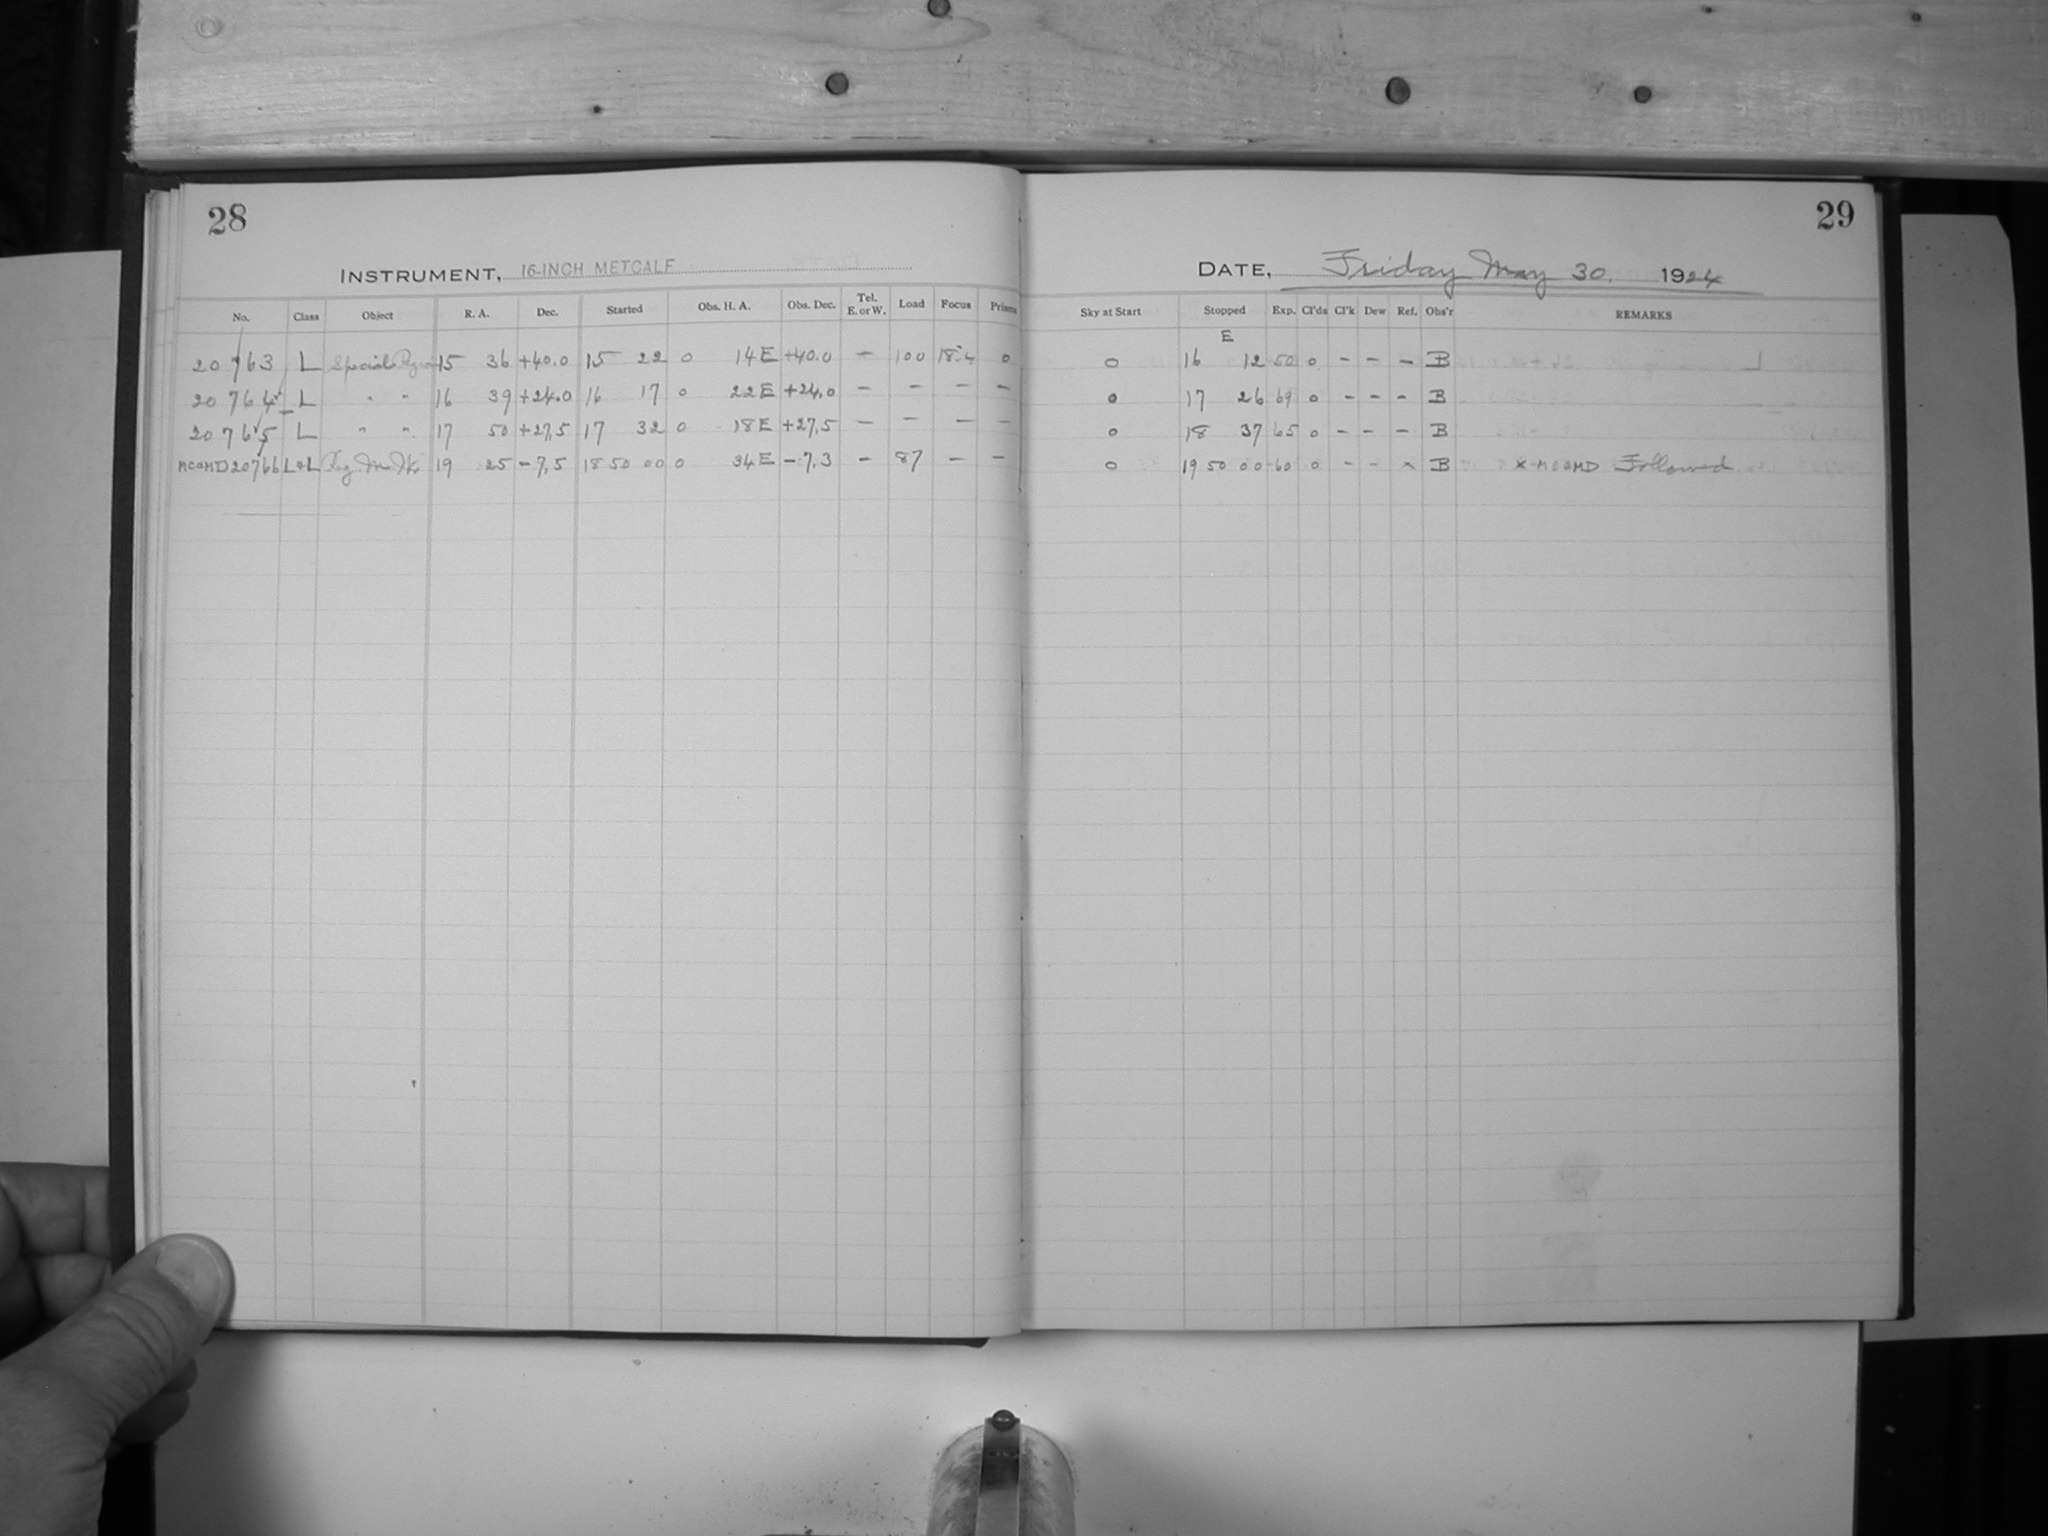 28
INSTRUMENT, 16-INCH METCALF
No. Class Object R. A. Dec. Started Obs. H. A. Obs. Dec. Tel. E. or W. Load Focus Prisms
20763 L Special 15 36 +40.0 15 22 0 14E +40.0 - 100 18.4 0
20764 L " " 16 39 +24.0 16 17 0 22E +24.0 - - - -
20765 L " " 17 50 +27.5 17 32 0 18E +27.5 - - - -
MC&MD 20766 L&L 19 25 -7.5 18 50 00 0 34E -7.3 - 87 - -
29
DATE, Friday May 30. 1924
Sky at Start Stopped Exp. Cl'ds Cl'k Dew Ref. Obs'r REMARKS
E
0 16 12 50 0 - - - B
0 17 26 69 0 - - - B
0 18 37 65 0 - - - B
0 19 50 00 60 0 - - x B x-MC&MD Followed